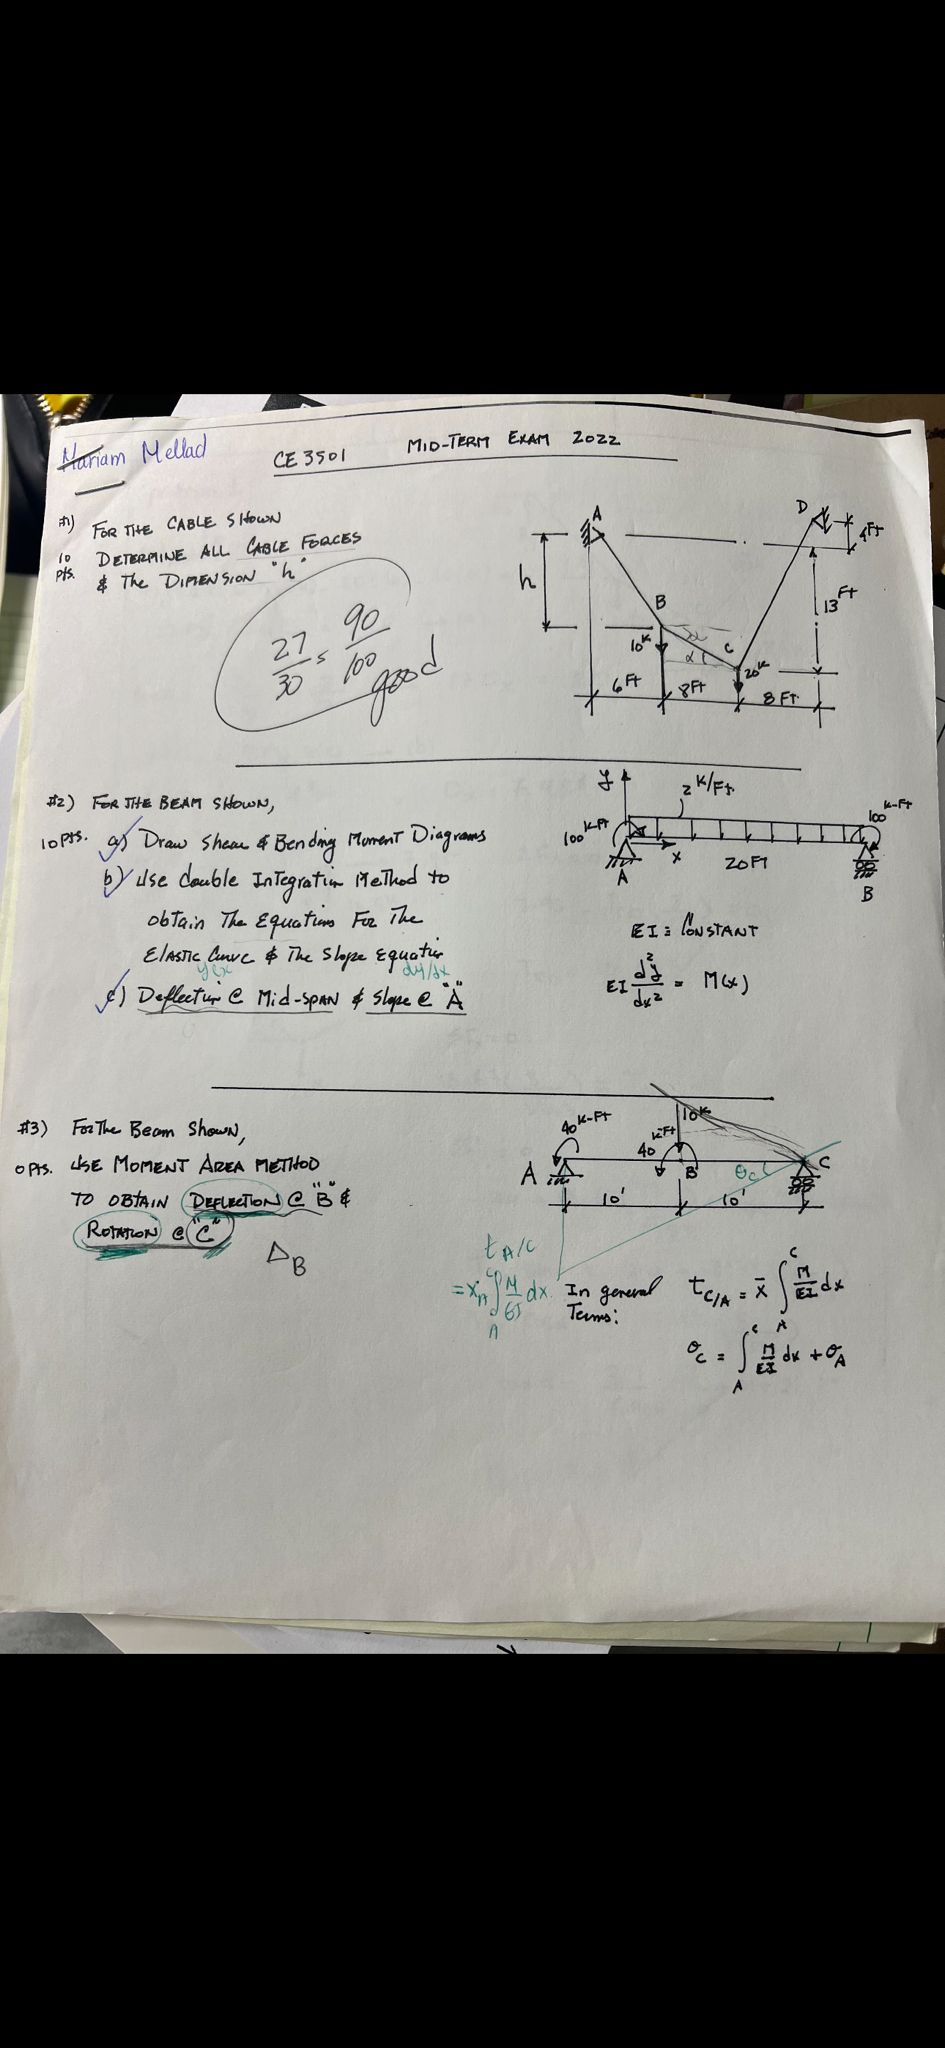 Mariam Mellad
CE 3501
MID-TERM EXAM 2022
#1) FOR THE CABLE SHOWN
10 DETERMINE ALL CABLE FORCES
pts. & The DIMENSION "h"
27/30 = 90/100
good
A
D
4 Ft
h
13 Ft
B
10 K
α
C
α
20 K
6 Ft
8 Ft
8 Ft.
#2) FOR THE BEAM SHOWN,
10 pts. a) Draw Shear & Bending Moment Diagrams
b) Use double Integration Method to
obtain The Equations For The
Elastic Curve & The Slope Equation
dy/dx
c) Deflection @ Mid-span & Slope @ "A"
y
2 K/Ft.
100 K-Ft
100 K-Ft
x
20 Ft
A
B
EI = CONSTANT
EI d²y/dx² = M(x)
#3) For The Beam Shown,
0 pts. USE MOMENT AREA METHOD
TO OBTAIN DEFLECTION @ "B" &
ROTATION @ "C"
ΔB
40 K-Ft
10 K
40 K-Ft
A
B
θc
C
10'
10'
t A/C
In general Terms:
t C/A = x̄ ∫ M/EI dx
A
C
θC = ∫ M/EI dx + θA
A
C